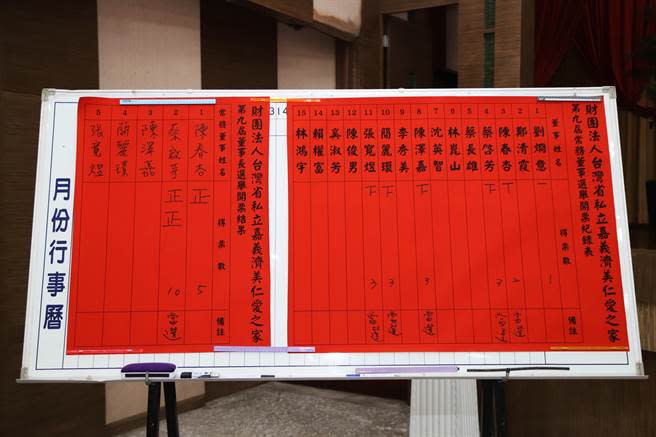 財團法人台灣省私立嘉義濟美仁愛之家
第九屆常務董事選舉開票紀錄表
董事姓名 得票數 備註
1 劉炯意 一 1
2 鄭清霞 2 當選
3 陳春杏 下 3 當選
4 蔡啓芳 下
5 蔡長雄
6 林崑山
7 沈英智
8 陳澤嘉 下 3 當選
9 李秀美
10 簡麗環 下 3 當選
11 張寬煜 下 3 當選
12 陳俊男
13 吳淑芳
14 賴權富
15 林鴻宇
314
財團法人台灣省私立嘉義濟美仁愛之家
第九屆董事長選舉開票結果
常務董事姓名 得票數 備註
1 陳春杏 正 5
2 蔡啟芳 正正 10 當選
3 陳澤嘉
4 簡麗環
5 張寬煜
月份行事曆